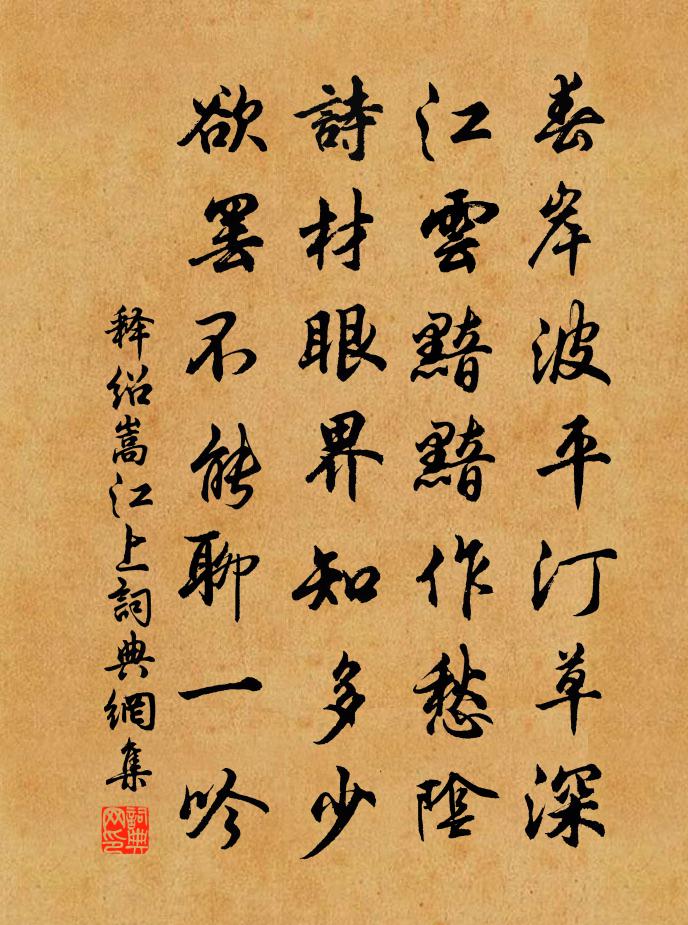 春岸波平汀草深
江雲黯黯作愁陰
詩材眼界知多少
欲罢不能聊一吟
释绍嵩江上詞典網集
詞典网印